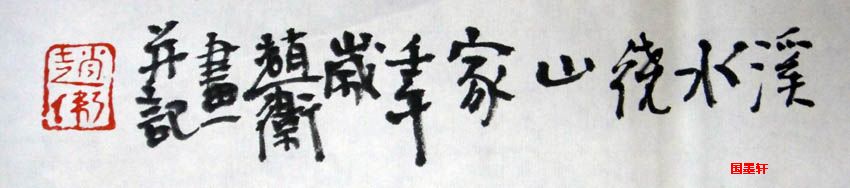 溪水繞山家壬午歲趙衛畫并記
趙衛
国墨轩